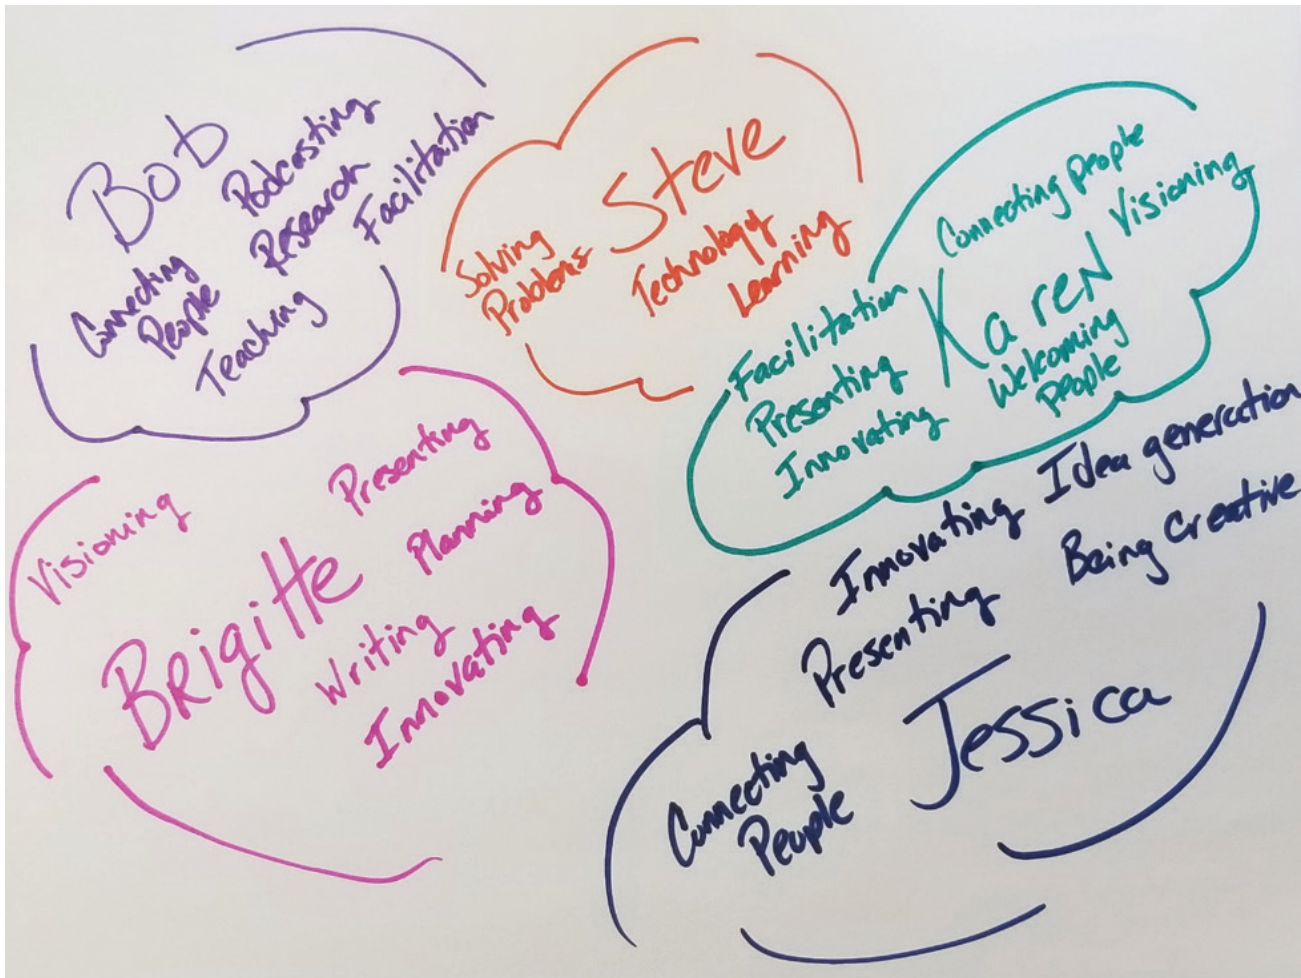 Bob
Podcasting
Research
Facilitation
Connecting
People
Teaching
Steve
Solving
Problems
Technology
Learning
Connecting people
Visioning
Karen
Facilitation
Presenting
Innovating
Welcoming
People
Visioning
Presenting
Planning
BRigitte
Writing
Innovating
Innovating
Idea generation
Presenting
Being Creative
Jessica
Connecting
People